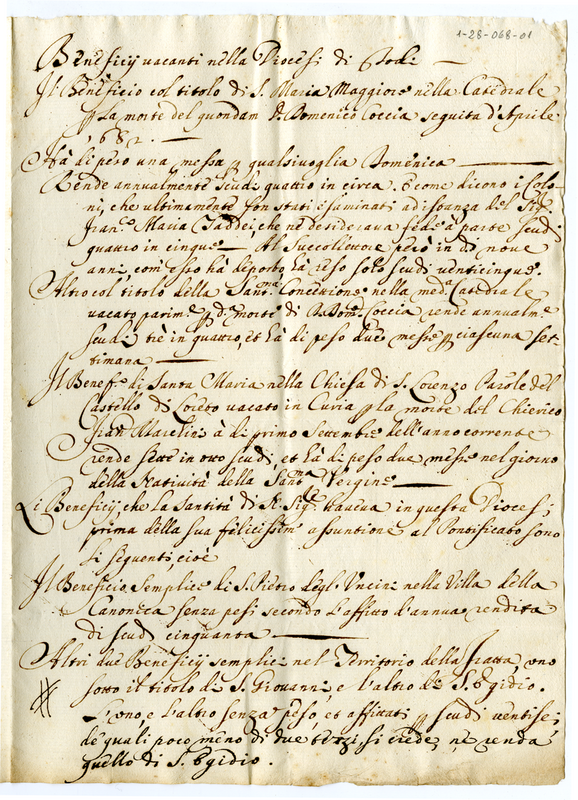 1-28-068-01
Beneficij vacanti nella Diocesi di Todi
Il Beneficio col titolo di S. Maria Maggiore nella Catedrale
p la morte del quondam D. Domenico Coccia seguita d'Aprile
1682.
Hà di peso una messa p qualsivoglia Domenica
Rende annualmente scudi quattro in circa. E come dicono i Colo-
ni, che ultimamente son stati esaminati ad istanza del Sig.
Fran.co Maria Taddei, che ne desiderava fede à parte scudi
quattro in cinque. Al Succollettore però in di nove
anni, com'esso hà deposto, hà reso solo scudi venticinque.
Altro col titolo della Sant.ma Concettione nella med.a Catedrale
vacato parim.e p d.a morte di D. Dom.co Coccia rende annualm.e
scudi trè in quattro, et hà di peso due messe p ciascuna set-
timana
Il Benef.o di Santa Maria nella Chiesa di S. Lorenzo Parole del
Castello di Loreto vacato in Curia p la morte del Chierico
Gian Marelini à di primo Settembre dell'anno corrente
rende sette in otto scudi, et hà di peso due messe nel giorno
della Natività della Sant.ma Vergine
Li Beneficij, che la Santità di N. Sig.e haveva in questa Diocesi
prima della sua felicissim.a assuntione al Pontificato sono
li seguenti, cioè
Il Beneficio semplice di S. Pietro degl'Uncini nella Villa della
Canonica senza pesi secondo l'affitto d'annua rendita
di scudi cinquanta
Altri due Beneficij semplici nel Territorio della Fratta, uno
sotto il titolo di S. Giovanni, e l'altro di S. Egidio.
L'uno, e l'altro senza peso, et affittati p scudi ventisei,
de quali poco meno di due terzi si crede, ne renda
quello di S. Egidio.